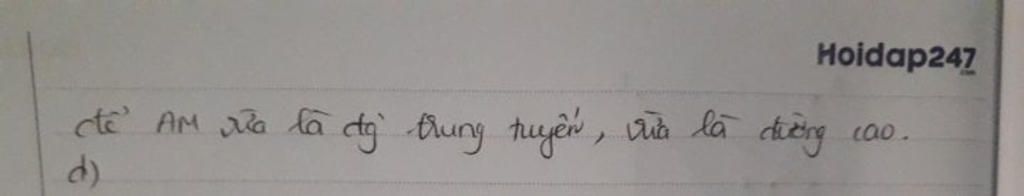 Hoidap247
.com
để AM vừa là đg` trung tuyến, vừa là đường cao.
d)